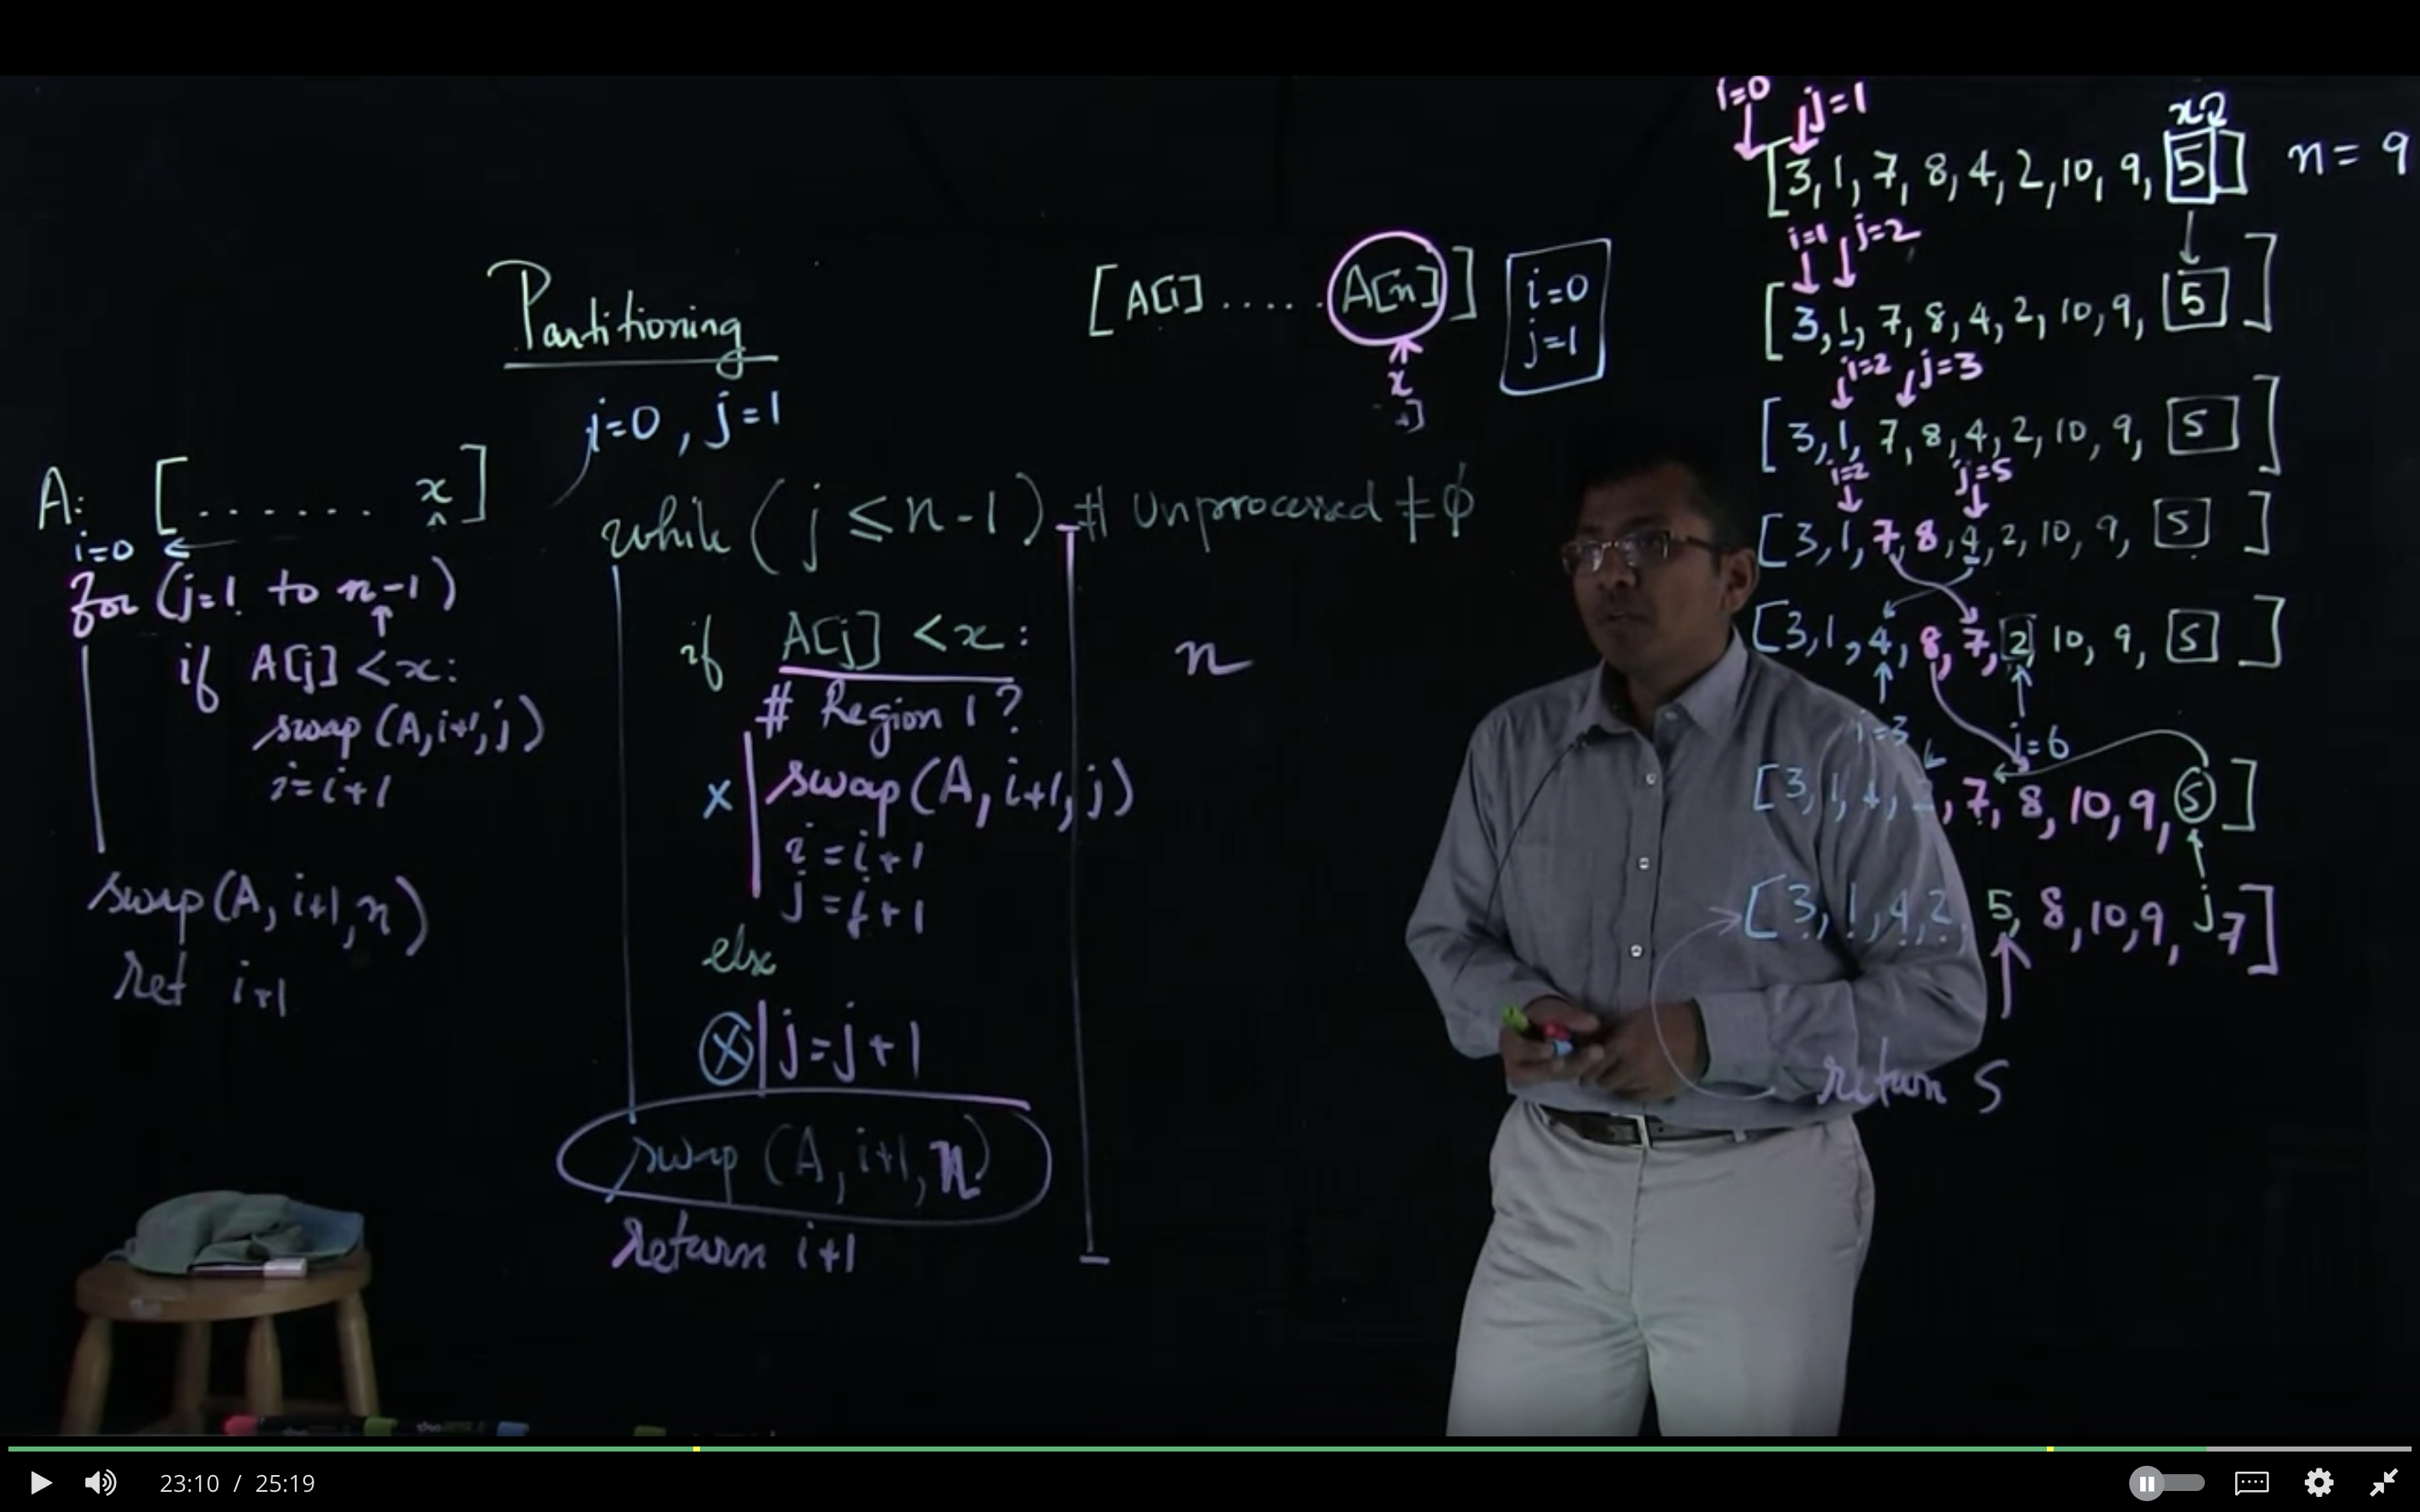 Partitioning
i=0, j=1
A: [....... x]
i=0
for (j=1 to n-1)
if A[j] < x:
swap (A, i+1, j)
i = i+1
swap (A, i+1, n)
ret i+1
while (j ≤ n-1) # Unprocessed ≠ ϕ
if A[j] < x:
# Region 1?
x swap (A, i+1, j)
i = i+1
j = j+1
else
x j = j+1
swap (A, i+1, n)
return i+1
[A[i] ..... A[n]]
x
i=0
j=1
n
i=0 j=1 x
[3, 1, 7, 8, 4, 2, 10, 9, 5] n = 9
i=1 j=2
[3, 1, 7, 8, 4, 2, 10, 9, 5]
i=2 j=3
[3, 1, 7, 8, 4, 2, 10, 9, 5]
i=2 j=5
[3, 1, 7, 8, 4, 2, 10, 9, 5]
[3, 1, 4, 8, 7, 2, 10, 9, 5]
i=3 j=6
[3, 1, 4, 7, 8, 10, 9, 5]
j
[3, 1, 4, 2, 5, 8, 10, 9, 7]
return 5
23:10 / 25:19